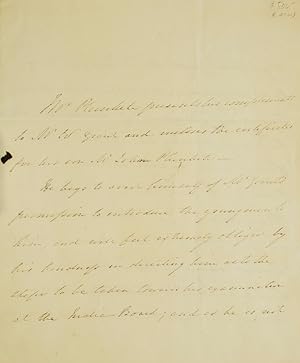 Mr. presents his compliments
to Mr. W. Grant and encloses the certificates
for his son Mr. John
He begs to avail himself of Mr. Grant's
permission to introduce the young man to
him, and will feel extremely obliged by
his kindness in directing him as to the
steps to be taken towards his examination
at the India Board; and as he is not